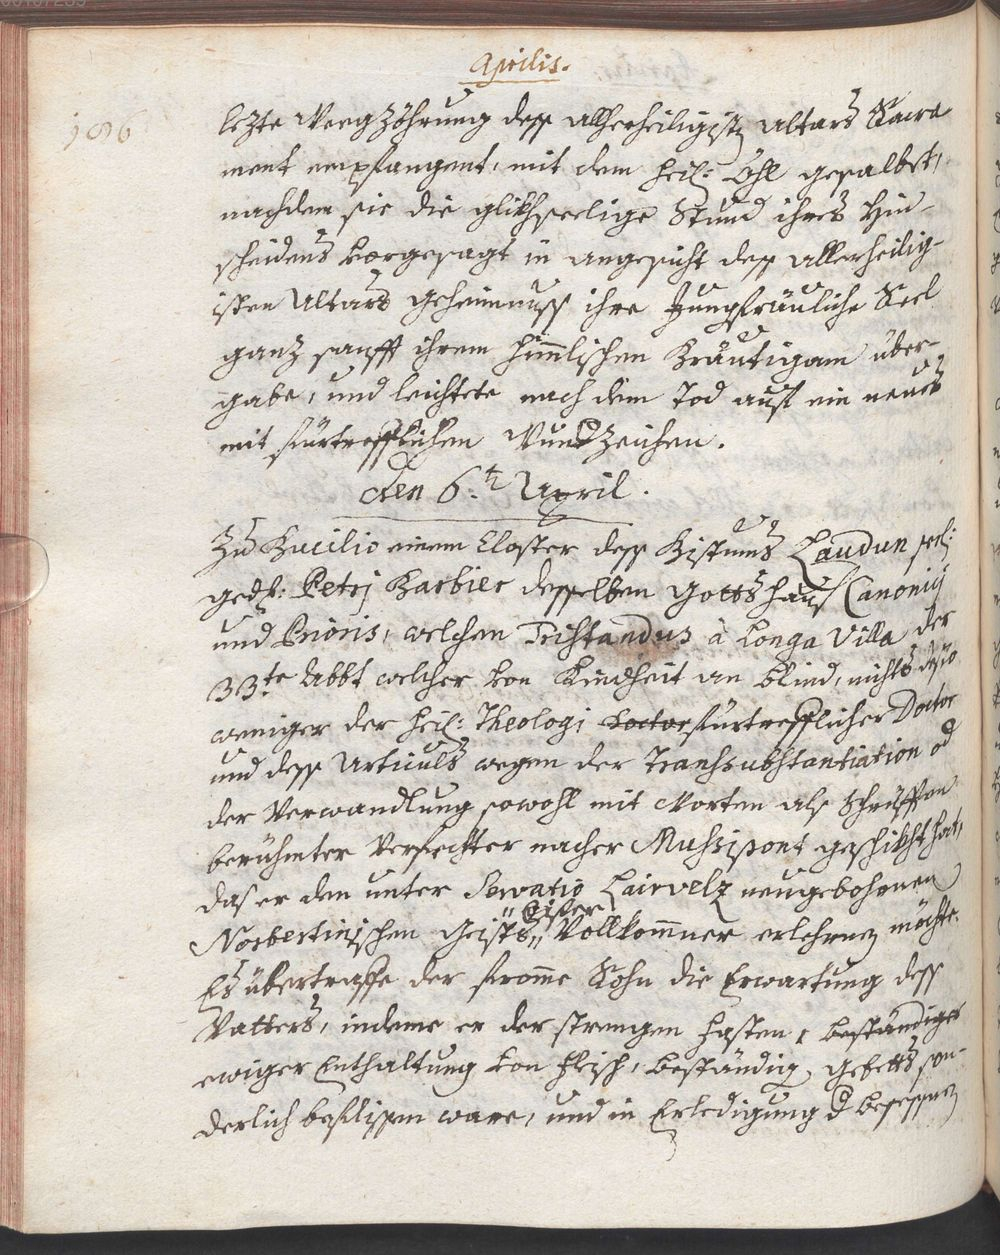 Aprilis.
186
lezte Weeg Zöhrung dess allerheiligisten altars Sacra
ment empfangent, mit dem heil: Öhl gesalbet,
nachdem sie die glikhseelige Stund ihres Hin-
scheidens vorgesagt in angesicht dess allerheilig-
isten Altars geheimnuss ihre Jungfräuliche Seel
ganz sanfft ihrem himlischen Bräutigam über-
gabe, und leichtete nach dem Tod auch ein neues
mit fürtrefflichen WundZeichen.
den 6.ten April.
Zu Bucilio einem Closter dess Bistums Laudun seel:
gedh: Petrj Barbier desselben Gottshaus Canonicj
und Prioris, welchen Tristandus à Longa Villa der
33te Abbt welcher von Kindheit an blind, nichts desto
weniger der heil: Theologi fürtrefflicher Doctor
und dess Articuls wegen der Transsubstantiation od
der Verwandlung sowohl mit Worten als Schrüfften
berühmter Verfechter nacher Mussipont geschikht hat,
das er den unter Servatio Lairvelz neugebohrnen
Norbertinischen Geist Vollkommner erlehrnen möchte.
Es übertraffe der fromme Sohn die Erwartung dess
Vatters, indeme er der strengen fasten, beständiger
ewiger Enthaltung von fleisch, beständig. gebetts son-
derlich beflissen ware, und in Erledigung d besessnen